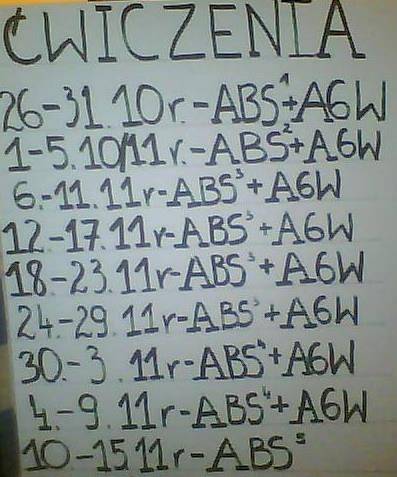 ĆWICZENIA
26-31.10r.-ABS¹+A6W
1-5.10/11r.-ABS²+A6W
6.-11.11r-ABS³+A6W
12.-17.11r-ABS³+A6W
18-23.11r-ABS³+A6W
24.-29.11r-ABS³+A6W
30.-3.11r-ABS⁴+A6W
4.-9.11r-ABS⁴+A6W
10-15.11r-ABS⁵